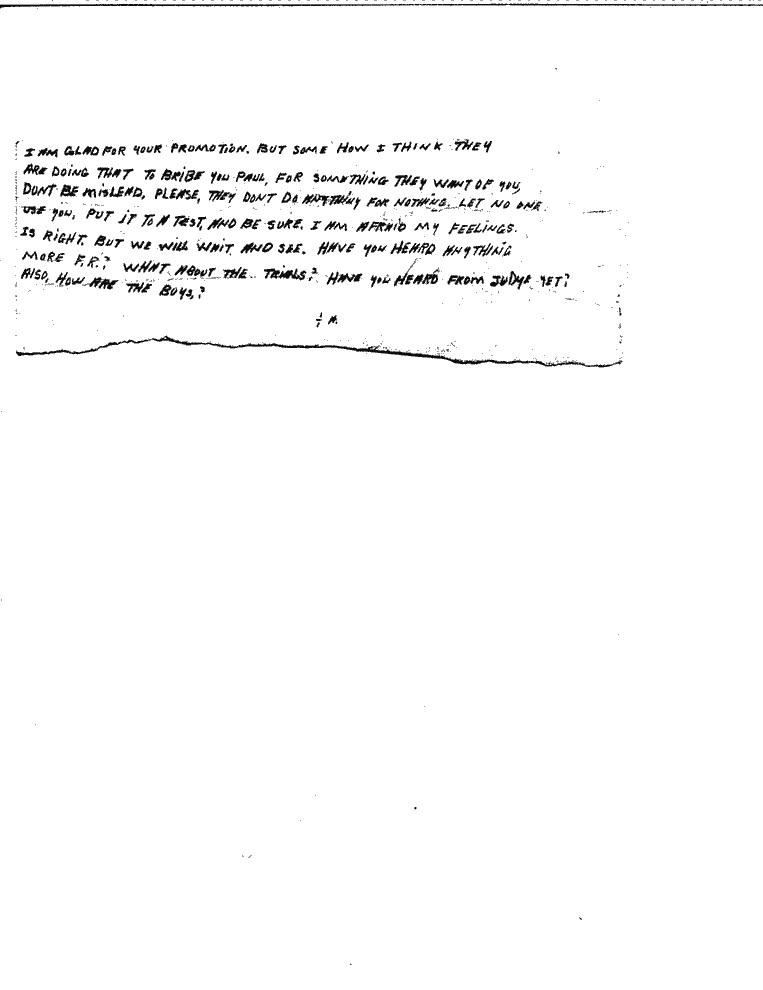 I AM GLAD FOR YOUR PROMOTION. BUT SOME HOW I THINK THEY
ARE DOING THAT TO BRIBE YOU PAUL, FOR SOMETHING THEY WANT OF YOU,
DUNT BE MISLEAD, PLEASE, THEY DONT DO ANYTHING FOR NOTHING. LET NO ONE
USE YOU. PUT IT TO A TEST, AND BE SURE. I AM AFRAID MY FEELINGS.
IS RIGHT. BUT WE WILL WAIT AND SEE. HAVE YOU HEARD ANYTHING
MORE F.R.? WHAT ABOUT THE TRIALS? HAVE YOU HEARD FROM JUDYE YET?
ALSO, HOW ARE THE BOYS,?